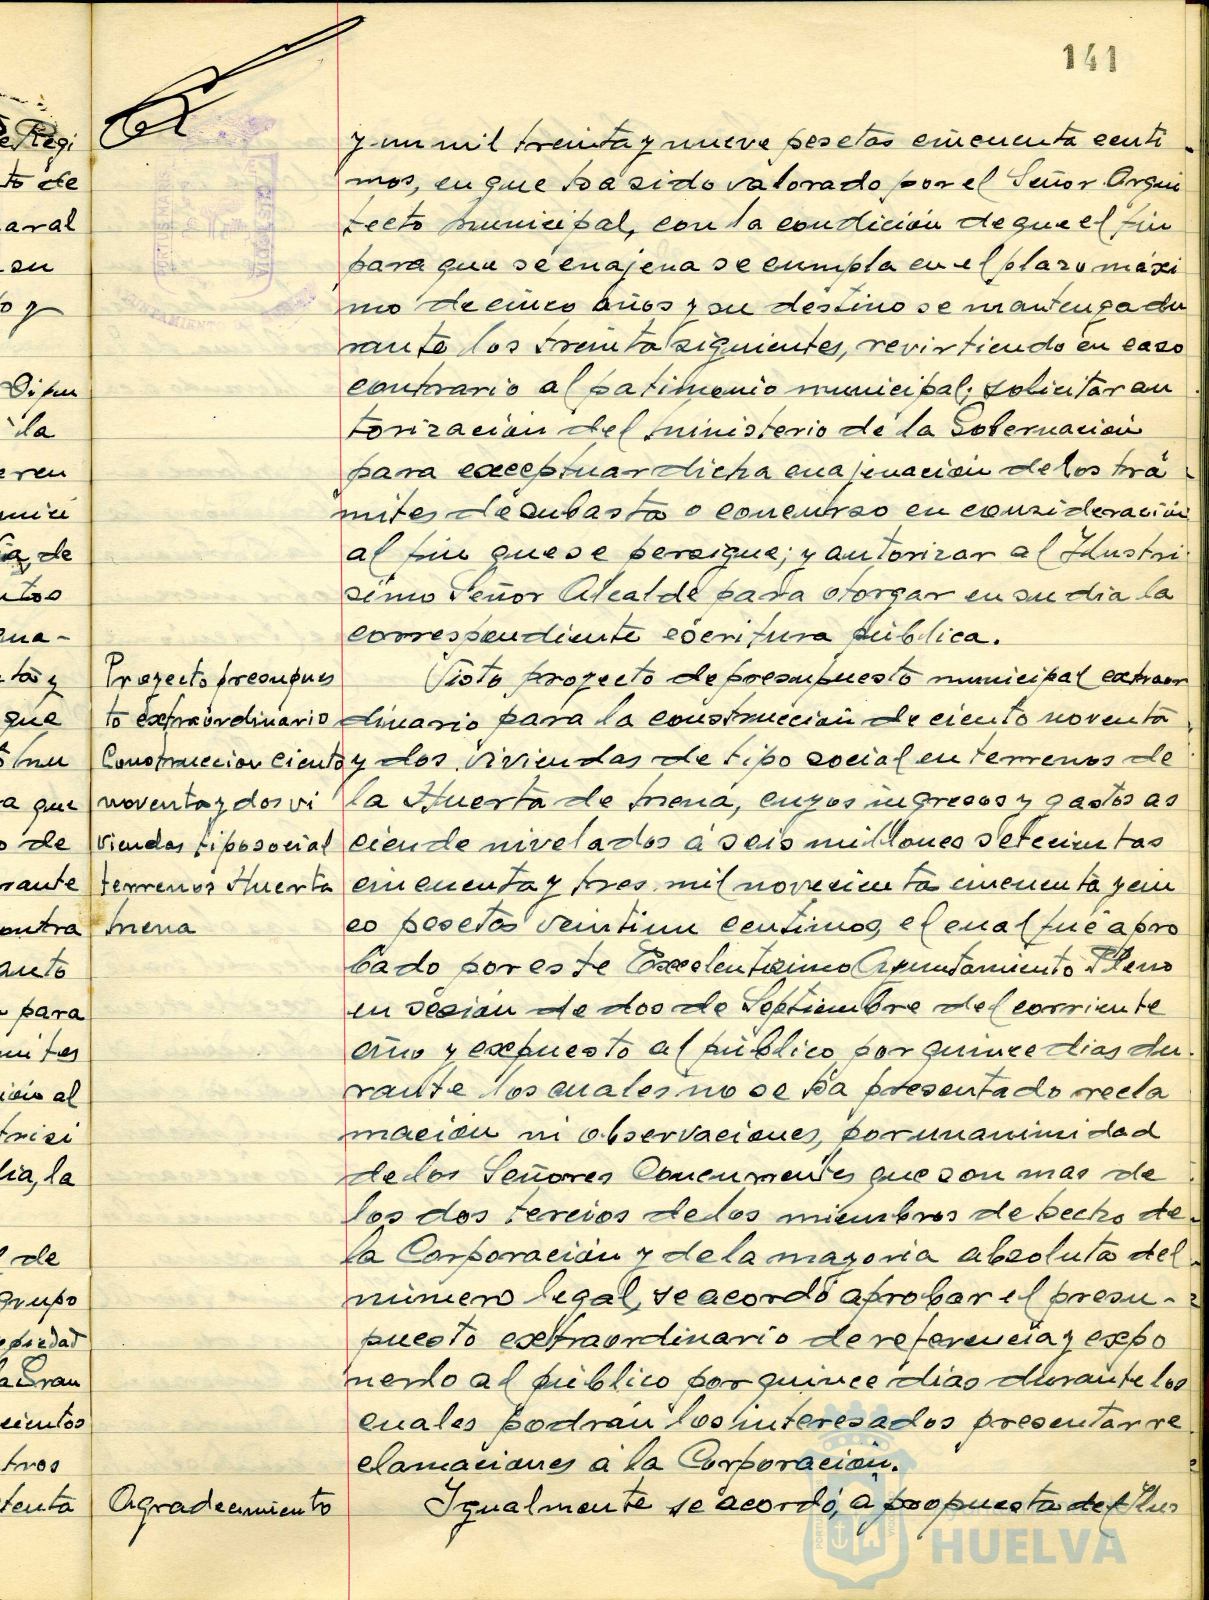 141
y un mil treinta y nueve pesetas cincuenta centi
mos, en que ha sido valorado por el Señor Arqui
tecto Municipal, con la condición de que el fin
para que se enajena se cumpla en el plazo máxi
mo de cinco años y su destino se mantenga du
rante los treinta siguientes, revirtiendo en caso
contrario al patimonio municipal; solicitar au
torización del Ministerio de la Gobernación
para exceptuar dicha enajenación de los trá
mites de subasta o concurso en consideración
al fin que se persigue; y autorizar al Ilustri
simo Señor Alcalde para otorgar en su dia la
correspondiente escritura pública.
Proyecto presupues
to extraordinario
Construccion ciento
noventa y dos vi
viendas tipo social
terrenos Huerta
Mena
Visto proyecto de presupuesto municipal extraor
dinario para la construcción de ciento noventa
y dos viviendas de tipo social en terrenos de
la Huerta de Mena, cuyos ingresos y gastos as
ciende nivelados á seis millones setecientas
cincuenta y tres mil novecienta cincuenta y cin
co pesetas veintiun centimos, el cual fué apro
bado por este Excelentisimo Ayuntamiento Pleno
en sesión de dos de Septiembre del corriente
año y expuesto al público por quince dias du
rante los cuales no se ha presentado recla
mación ni observaciones, por unanimidad
de los Señores Concurrentes que son mas de
los dos tercios de los miembros de hecho de
la Corporación y de la mayoria absoluta del
número legal, se acordó aprobar el presu-
puesto extraordinario de referencia y expo
nerlo al público por quince dias durante los
cuales podrán los interesados presentar re
clamaciones á la Corporación.
Agradecimiento
Igualmente se acordó, á propuesta del Ilus
HUELVA
e Regi
to de
aral
su
o y
Dipu
la
eren
de
ntos
ena-
ta y
que
a que
o de
rante
ontra
anto
para
mites
ión al
trisi
dia, la
de
grupo
opiedad
a Gran
cientos
tros
tenta